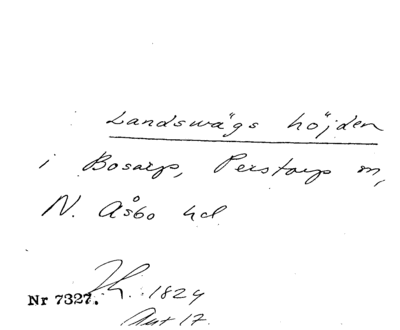 Landswägs höjden
i Bosarp, Perstorp m,
N. Åsbo hd
Nr 7327. 1824
Akt 17.